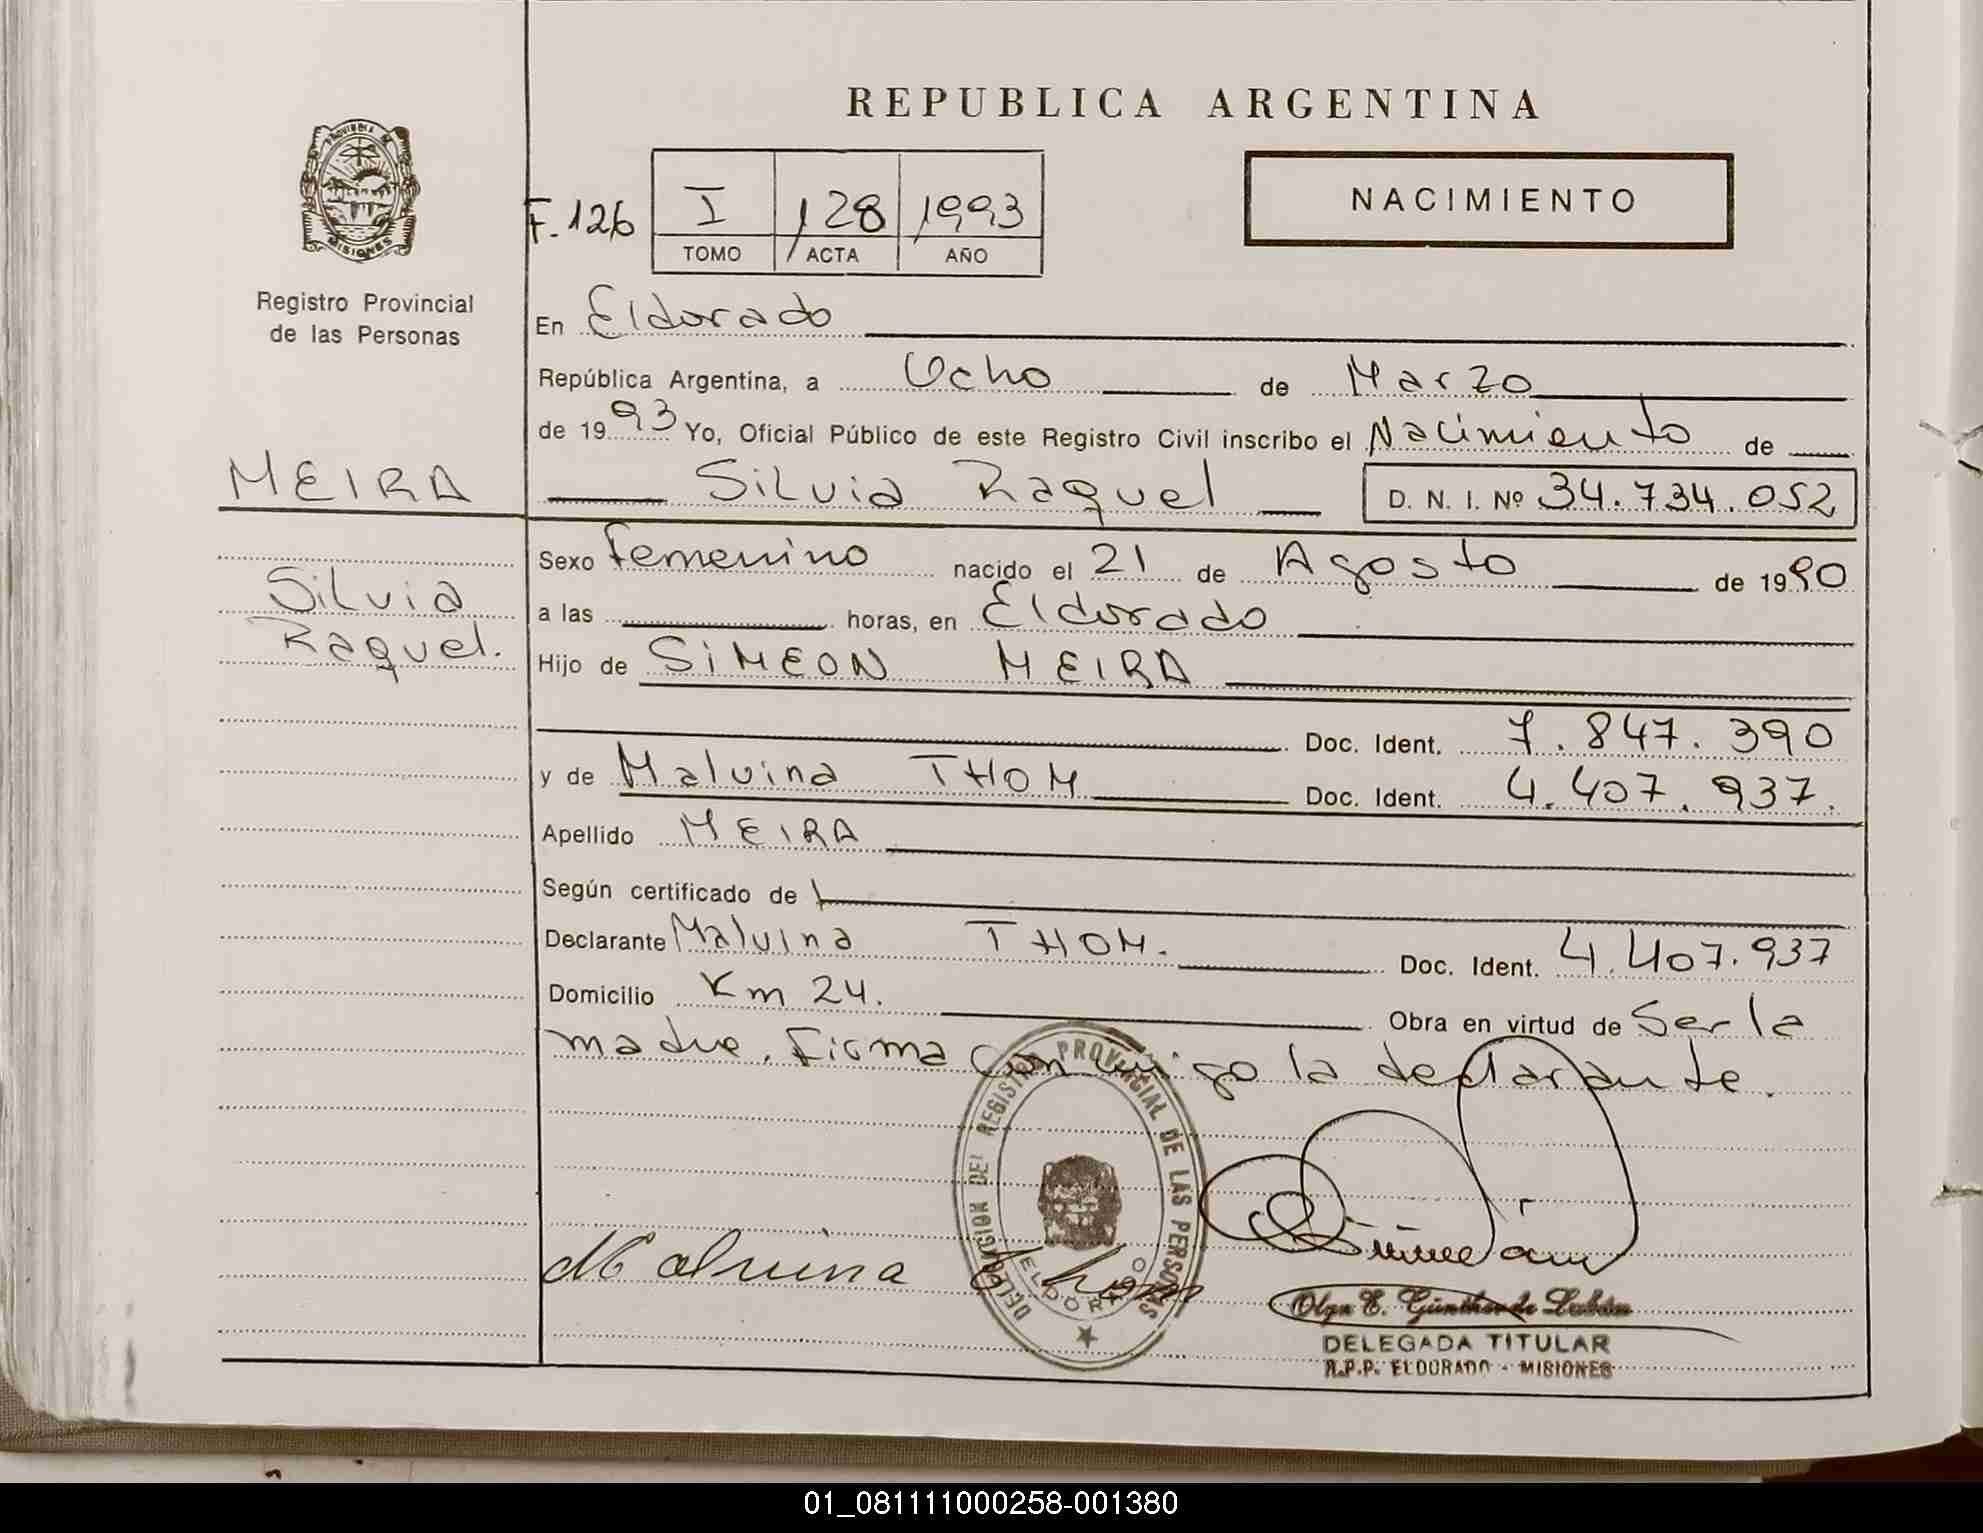 REPUBLICA ARGENTINA
PROVINCIA DE MISIONES
F. 126
I 128 1993
TOMO ACTA AÑO
NACIMIENTO
Registro Provincial
de las Personas
En Eldorado
República Argentina, a Ocho de Marzo
de 1993 Yo, Oficial Público de este Registro Civil inscribo el Nacimiento de
MEIRA
Silvia Raquel D. N. I. Nº 34.734.052
Silvia
Raquel.
Sexo Femenino nacido el 21 de Agosto de 1990
a las horas, en Eldorado
Hijo de SIMEON MEIRA
Doc. Ident. 7.847.390
y de Malvina THOM Doc. Ident. 4.407.937.
Apellido MEIRA
Según certificado de
Declarante Malvina THOM. Doc. Ident. 4.407.937
Domicilio Km 24. Obra en virtud de Ser la
madre. Firma conmigo la declarante.
DELEGACION DEL REGISTRO PROVINCIAL DE LAS PERSONAS
ELDORADO
Malvina Thom
Olga E. Günther de Labán
DELEGADA TITULAR
R.P.P. ELDORADO - MISIONES
01_081111000258-001380